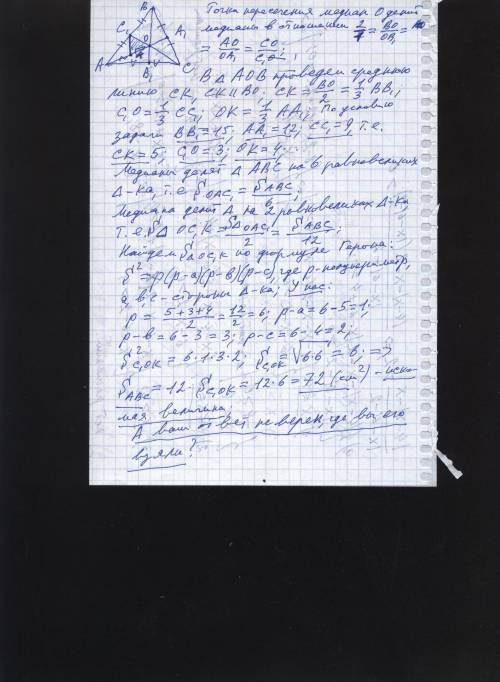 Точка пересечения медиан O делит
медианы в отношении 2/1 = BO/OB₁ =
= AO/OA₁ = CO/C₁O;
В Δ AOB проведем среднюю
линию CK, CK ∥ BO, CK = BO/2 = 1/3 BB₁,
C₁O = 1/3 CC₁; OK = 1/3 AA₁; По условию
задачи BB₁ = 15, AA₁ = 12, CC₁ = 9, т.е.
CK = 5, C₁O = 3; OK = 4.
Медианы делят Δ ABC на 6 равновеликих
Δ-ка, т.е. S OAC₁ = S ABC / 6;
Медиана делит Δ на 2 равновеликих Δ-ка,
т.е. S Δ OC₁K = S ΔOAC₁ / 2 = S ABC / 12;
Найдем S ΔOC₁K по формуле Герона:
S² = p(p-a)(p-в)(p-c), где p - полупериметр,
a, в, c - стороны Δ-ка; У нас:
p = (5+3+4)/2 = 12/2 = 6; p-a = 6-5 = 1;
p-в = 6-3 = 3; p-c = 6-4 = 2;
S² C₁OK = 6·1·3·2; S C₁OK = √6·6 = 6; =>
S ABC = 12·S C₁OK = 12·6 = 72 (см²) - иско-
мая величина.
А ваш ответ не верен, где вы его
взяли?
A
B
C
C₁
A₁
B₁
O